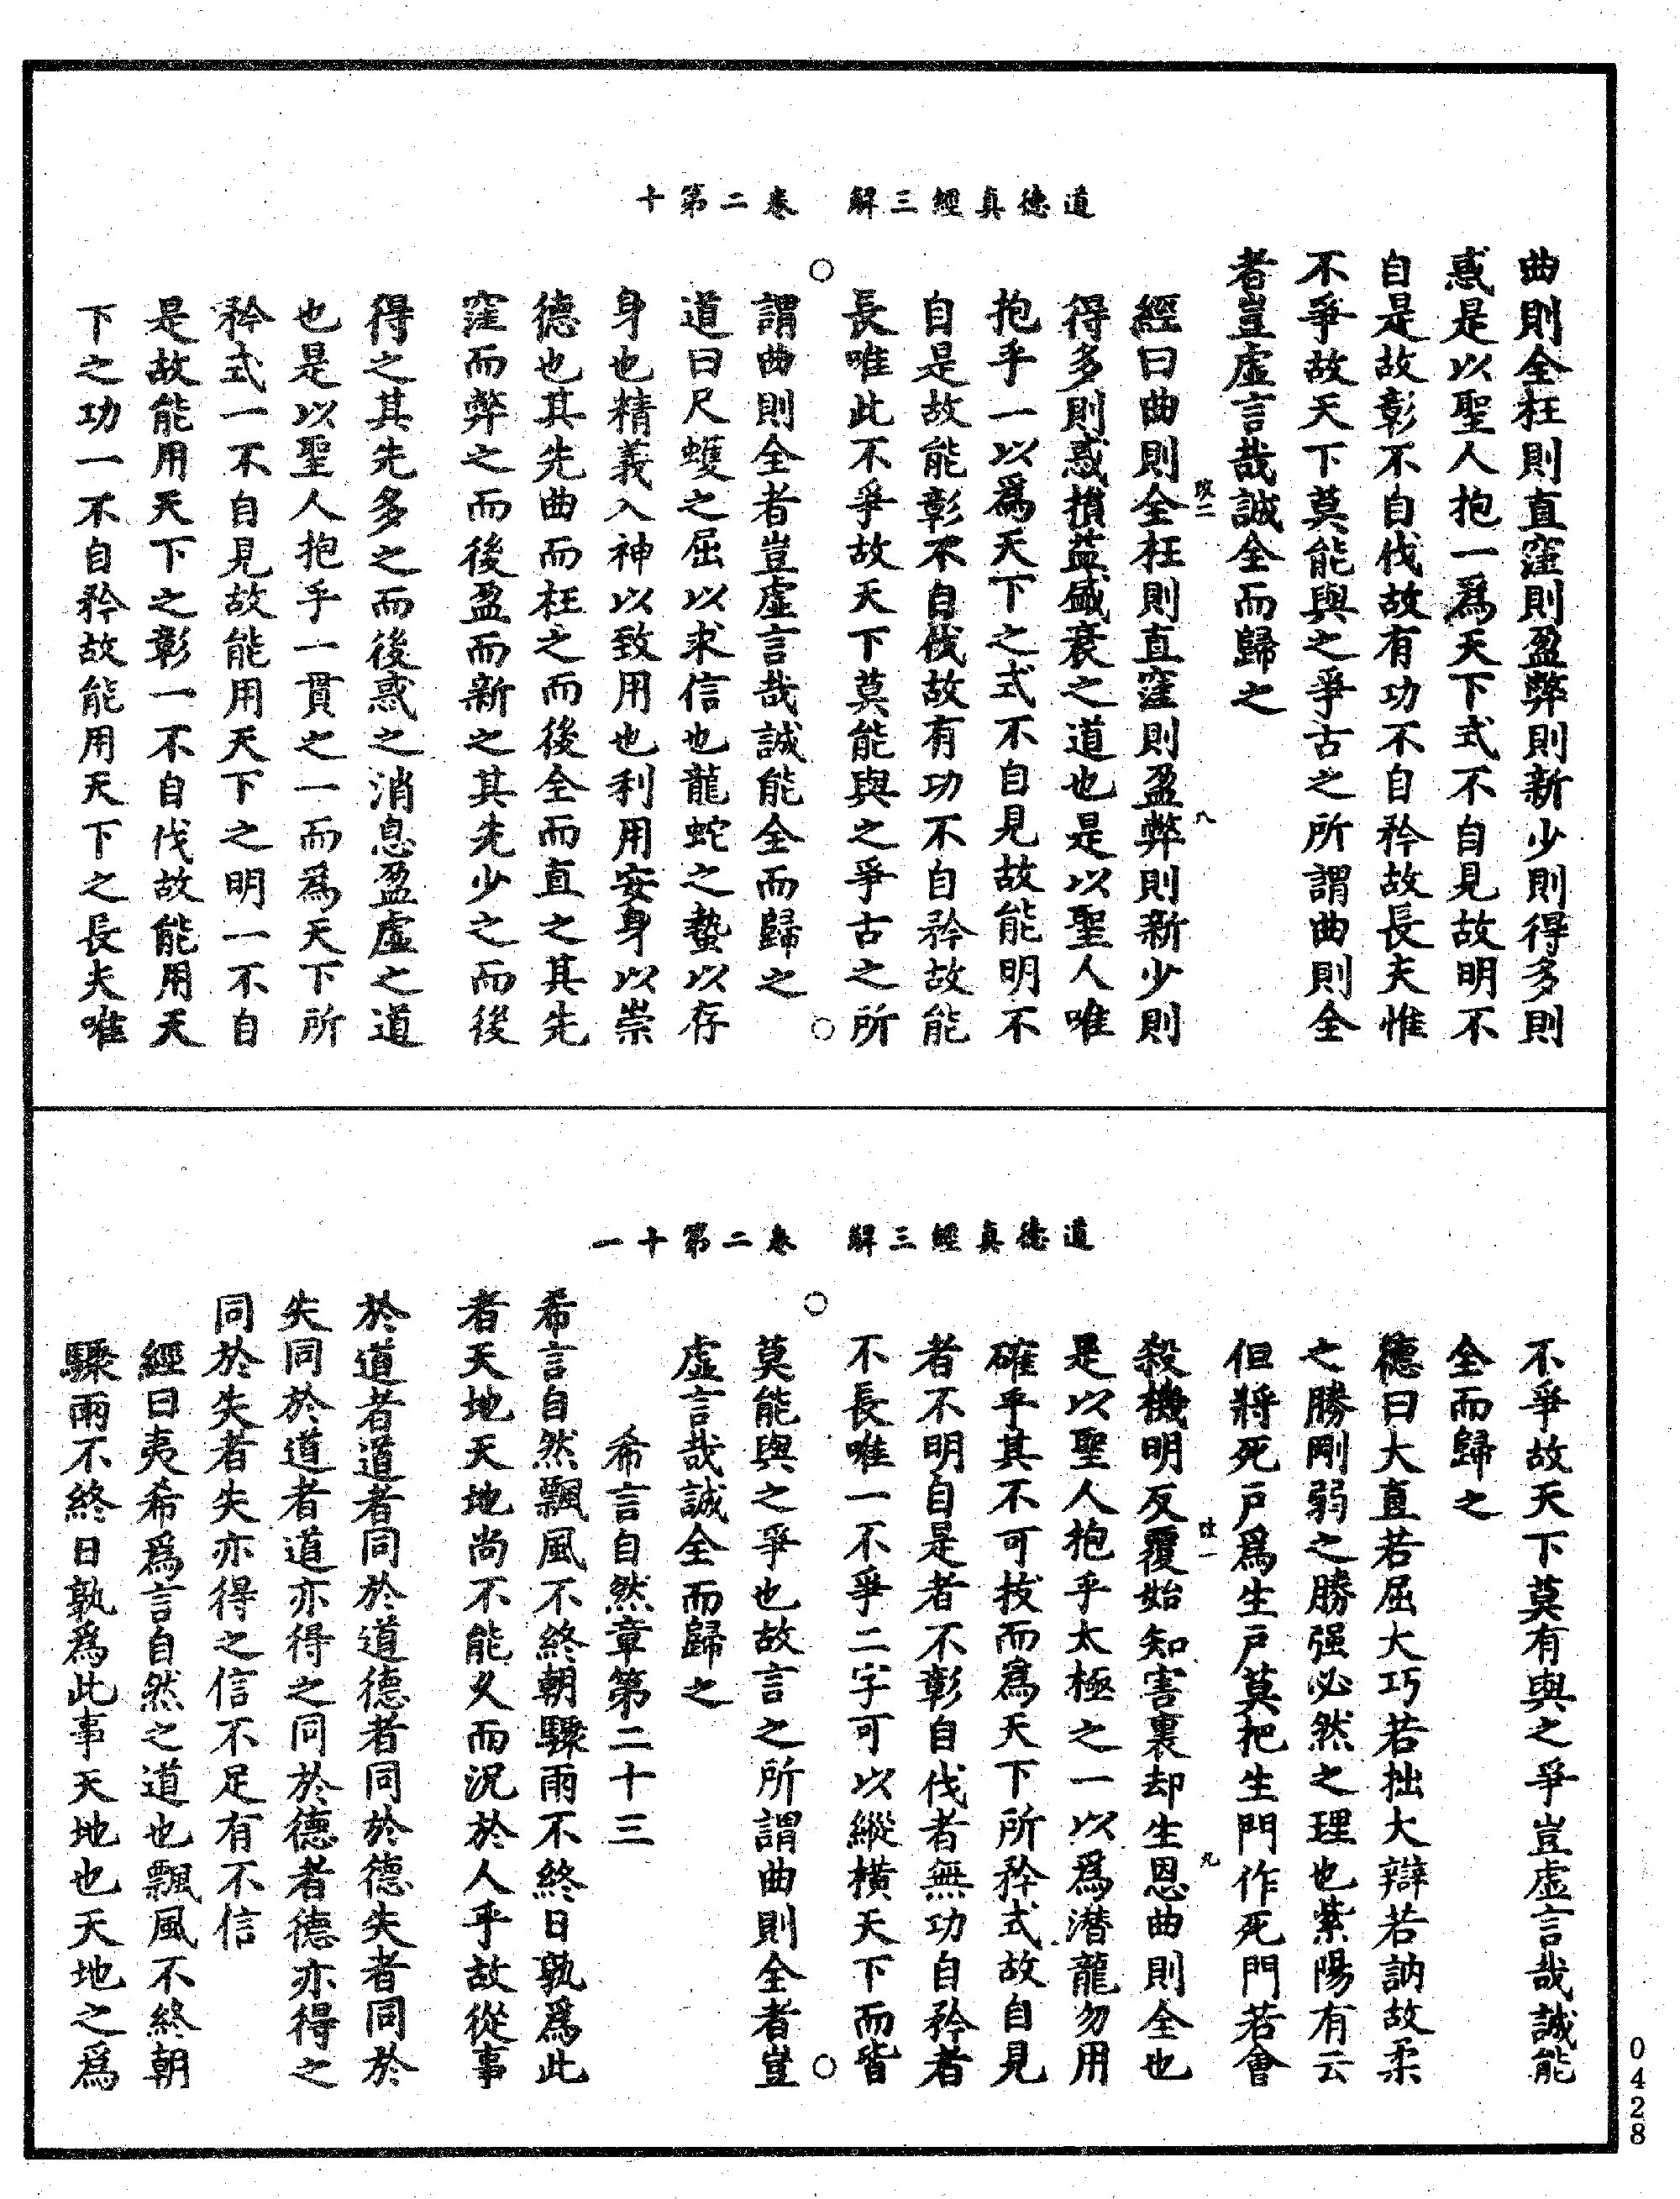 道德真經三解　卷二第十
曲則全枉則直窪則盈弊則新少則得多則
惑是以聖人抱一爲天下式不自見故明不
自是故彰不自伐故有功不自矜故長夫惟
不爭故天下莫能與之爭古之所謂曲則全
者豈虛言哉誠全而歸之
經曰曲則全枉則直窪則盈弊則新少則
得多則惑損益盛衰之道也是以聖人唯
抱乎一以爲天下之式不自見故能明不
自是故能彰不自伐故有功不自矜故能
長唯此不爭故天下莫能與之爭古之所
謂曲則全者豈虛言哉誠能全而歸之
道曰尺蠖之屈以求信也龍蛇之蟄以存
身也精義入神以致用也利用安身以崇
德也其先曲而枉之而後全而直之其先
窪而弊之而後盈而新之其先少之而後
得之其先多之而後惑之消息盈虛之道
也是以聖人抱乎一貫之一而爲天下所
矜式一不自見故能用天下之明一不自
是故能用天下之彰一不自伐故能用天
下之功一不自矜故能用天下之長夫唯
道德真經三解　卷二第十一
不爭故天下莫有與之爭豈虛言哉誠能
全而歸之
德曰大直若屈大巧若拙大辯若訥故柔
之勝剛弱之勝强必然之理也紫陽有云
但將死戶爲生戶莫把生門作死門若會
殺機明反覆始知害裏却生恩曲則全也
是以聖人抱乎太極之一以爲潛龍勿用
確乎其不可拔而爲天下所矜式故自見
者不明自是者不彰自伐者無功自矜者
不長唯一不爭二字可以縱橫天下而皆
莫能與之爭也故言之所謂曲則全者豈
虛言哉誠全而歸之
希言自然章第二十三
希言自然飄風不終朝驟雨不終日孰爲此
者天地天地尚不能久而況於人乎故從事
於道者道者同於道德者同於德失者同於
失同於道者道亦得之同於德者德亦得之
同於失者失亦得之信不足有不信
經曰夷希爲言自然之道也飄風不終朝
驟雨不終日孰爲此事天地也天地之爲
0428